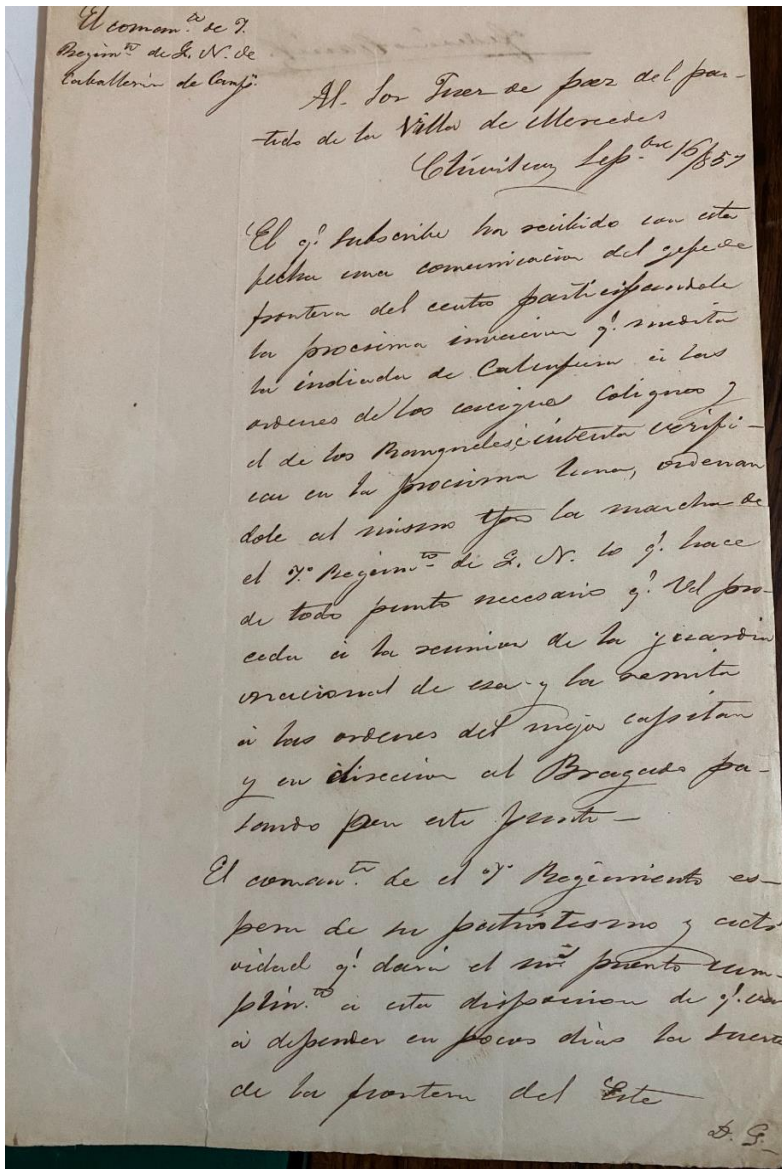 El coman.te de 7.
Regim.to de G. N. de
Caballeria de Camp.
Al Sor Juez de paz del par-
tido de la Villa de Mercedes
Chivilcoy Sep.bre 16/857
El q.e subscribe ha recibido con esta
fecha una comunicacion del gefe de
frontera del centro participandole
la procsima invacion q.e medita
la indiada de Calnfucu a las
ordenes de los cacique Coliqueo y
el de los Ranqueles e intenta verifi-
car en la procsima luna, ordenan
dole al mismo tpo la marcha de
el 7.o Regim.to de G. N. lo q.e hace
de todo punto necesario q.e Vd pro-
ceda a la reunion de la guardia
nacional de esa y la remita
a las ordenes del mejor capitan
y en direccion al Bragado pa-
sando por este punto –
El coman.te de el 7.o Regimiento es-
pera de su patriotismo y acti
vidad q.e dara el mas pronto cum-
plim.to a esta disposicion de q.e va
a depender en pocos dias la suerte
de la frontera del Este
D. G.